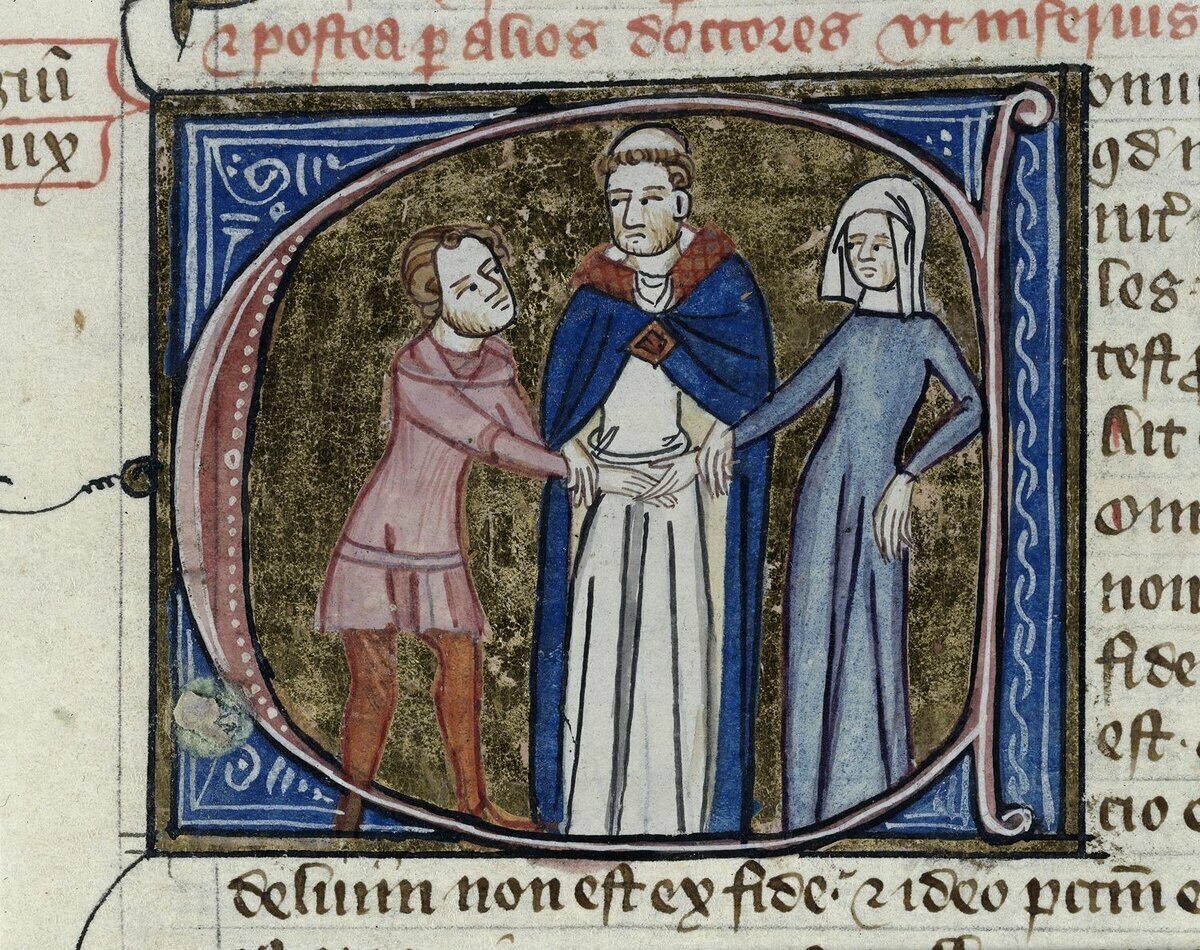 ⁊ postea ꝑ alios doctores vt inferius
giū
iux
omni
qđ n
nitͬ
les
test
Ait
om
non
fide
est .
cio
delium non est ex fide. ⁊ ideo pctm̄ e